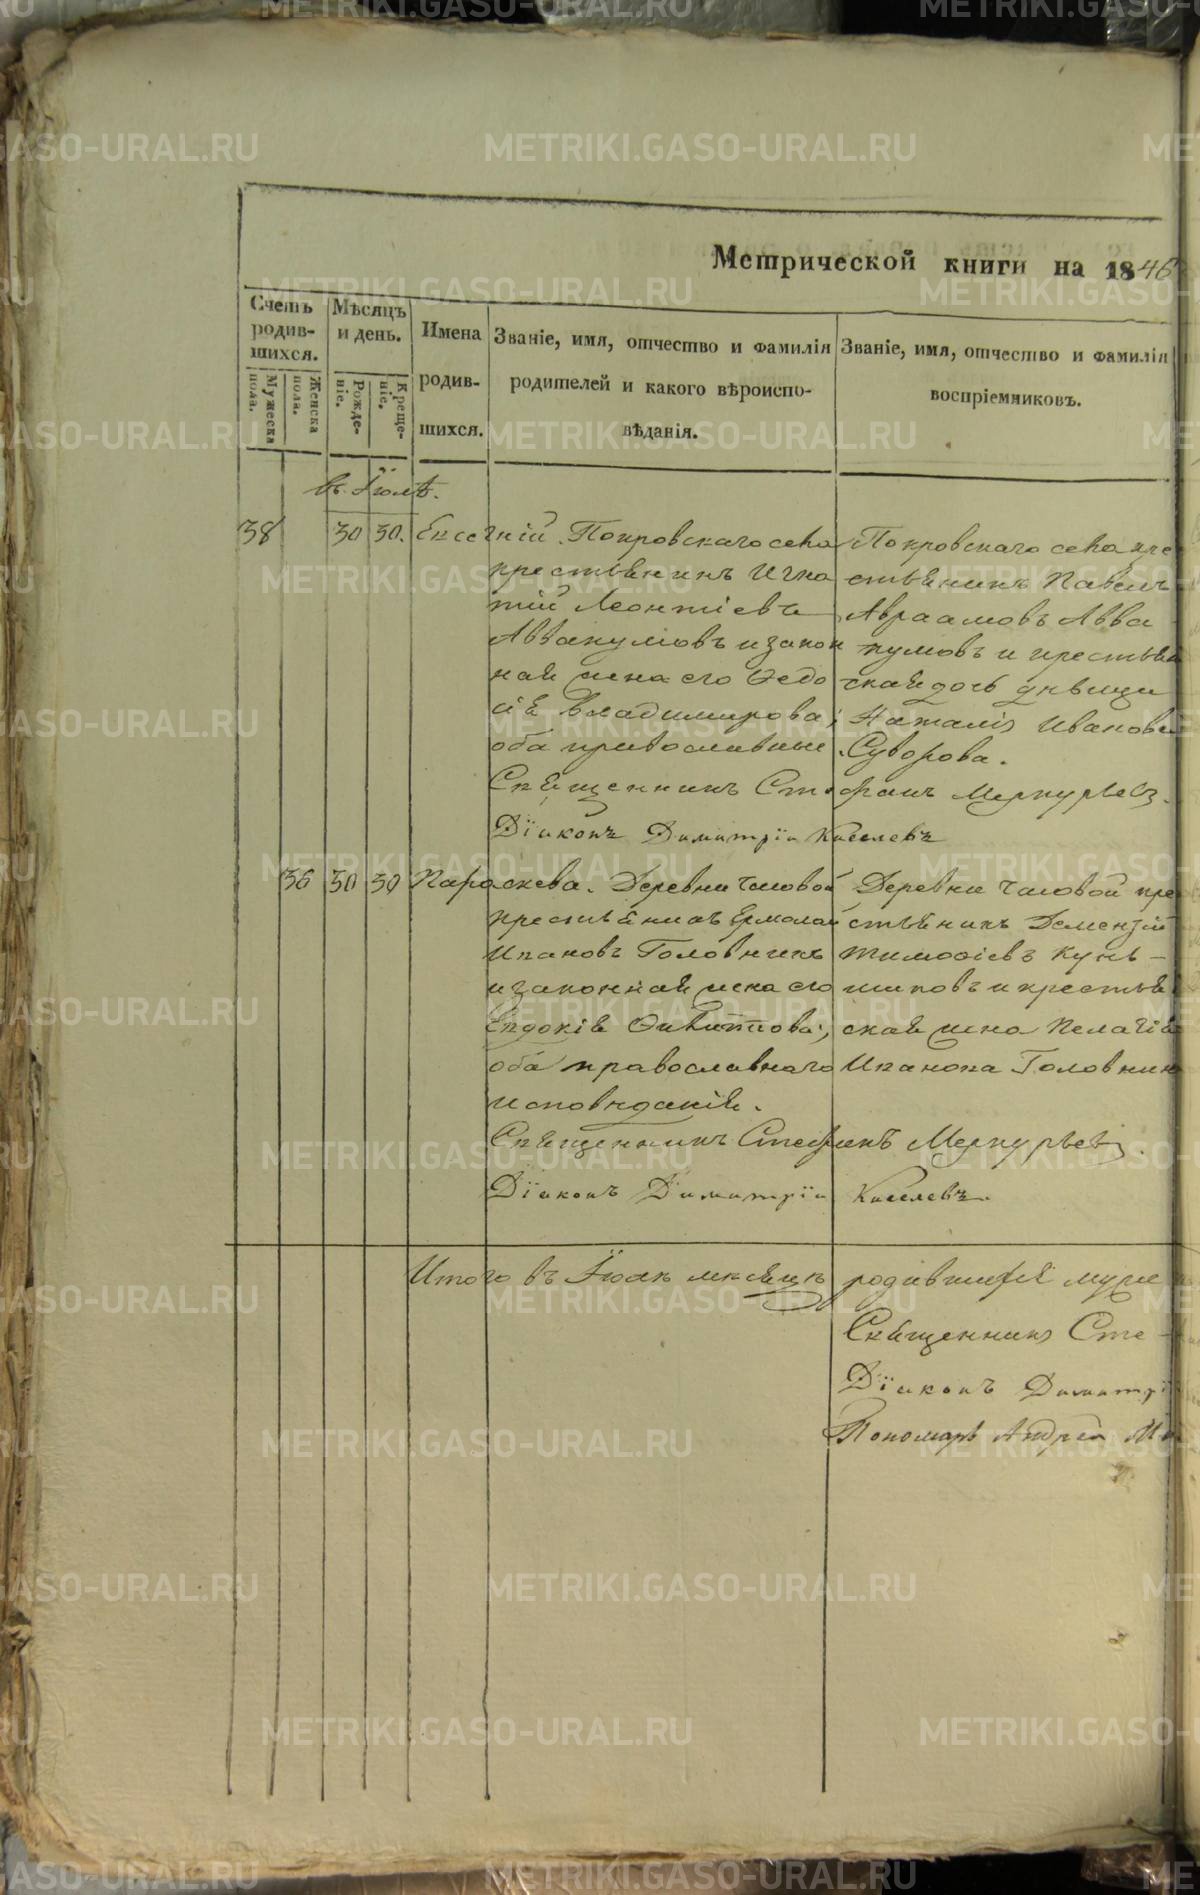 Метрической книги на 1846
Счетъ родив-шихся.
Мужеска пола.
Женска пола.
Мѣсяцъ и день.
Рожде-ніе.
Креще-ніе.
Имена родив-шихся.
Званіе, имя, отчество и фамилія
родителей и какого вѣроиспо-
вѣданія.
Званіе, имя, отчество и фамилія
воспріемниковъ.
въ Іюлѣ.
38 30 30. Евсегній. Покровскаго села
крестьянинъ Игна
тій Леонтіевъ
Аввакумовъ и закон
ная жена его Ѳедо
сія Владимирова;
оба православные.
Покровскаго села кре
стьянинъ Павелъ
Авраамовъ Авва
кумовъ и крестьян
ская дочь дѣвица
Наталія Иванова
Суворова.
Священникъ Стефанъ Меркурьевъ.
Діаконъ Димитрій Киселевъ
36 30 30 Параскева. Деревни Часовой
крестьянинъ Ермолай
Ивановъ Головнинъ
и законная жена его
Евдокія
оба православнаго
исповѣданія.
Деревни Часовой кре
стьянинъ Дементій
Тимофіевъ Кунь-
шиковъ и крестьян
ская жена Пелагія
Иванова Головнина
Священникъ Стефанъ Меркурьевъ.
Діаконъ Димитрій Киселевъ.
Итого въ Іюлѣ мѣсяцѣ родившихся муже
Священникъ Сте-
Діаконъ Димитрі
Пономарь Андрей
METRIKI.GASO-URAL.RU